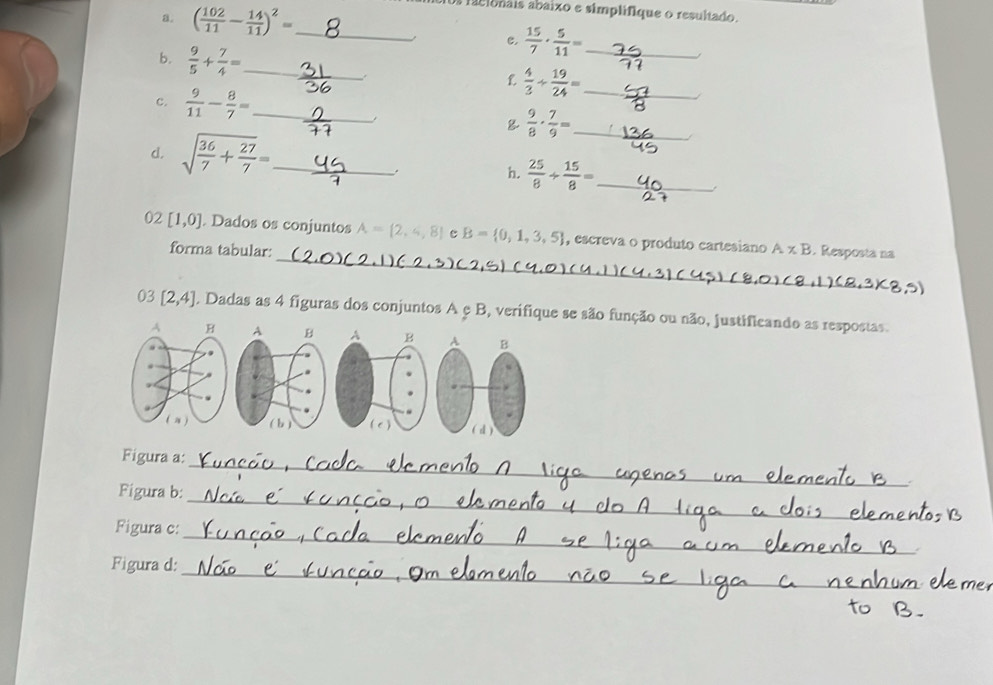 racionais abaixo e simplifique o resultado.
a. (102/11 − 14/11)² = 8
b. 9/5 + 7/4 = 31/36
c. 9/11 − 8/7 = 2/77
d. √(36/7 + 27/7) = 45/7
e. 15/7 · 5/11 = 75/77
f. 4/3 ÷ 19/24 = 57/8
g. 9/8 · 7/9 = 136/45
h. 25/8 ÷ 15/8 = 40/27
02 [1,0]. Dados os conjuntos A = {2, 4, 8} e B = {0, 1, 3, 5}, escreva o produto cartesiano A x B. Resposta na
forma tabular: (2,0)(2,1)(2,3)(2,5)(4,0)(4,1)(4,3)(4,5)(8,0)(8,1)(8,3)(8,5)
03 [2,4]. Dadas as 4 figuras dos conjuntos A e B, verifique se são função ou não, justificando as respostas.
A B A B A B A B
(a) (b) (c) (d)
Figura a: Função, cada elemento A liga apenas um elemento B
Figura b: Não é função, o elemento 4 do A liga a dois elementos B
Figura c: Função, cada elemento A se liga a um elemento B
Figura d: Não é função, um elemento não se liga a nenhum elemen
to B.